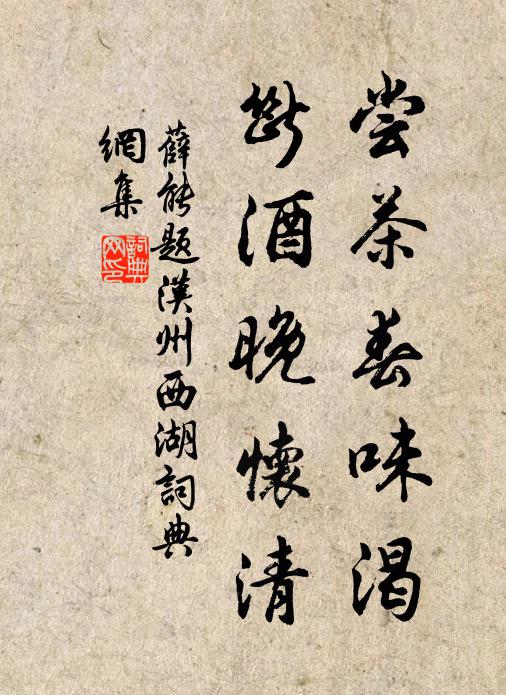 尝茶春味渴
断酒晚懷清
薛能题漢州西湖詞典
網集
詞典
网印